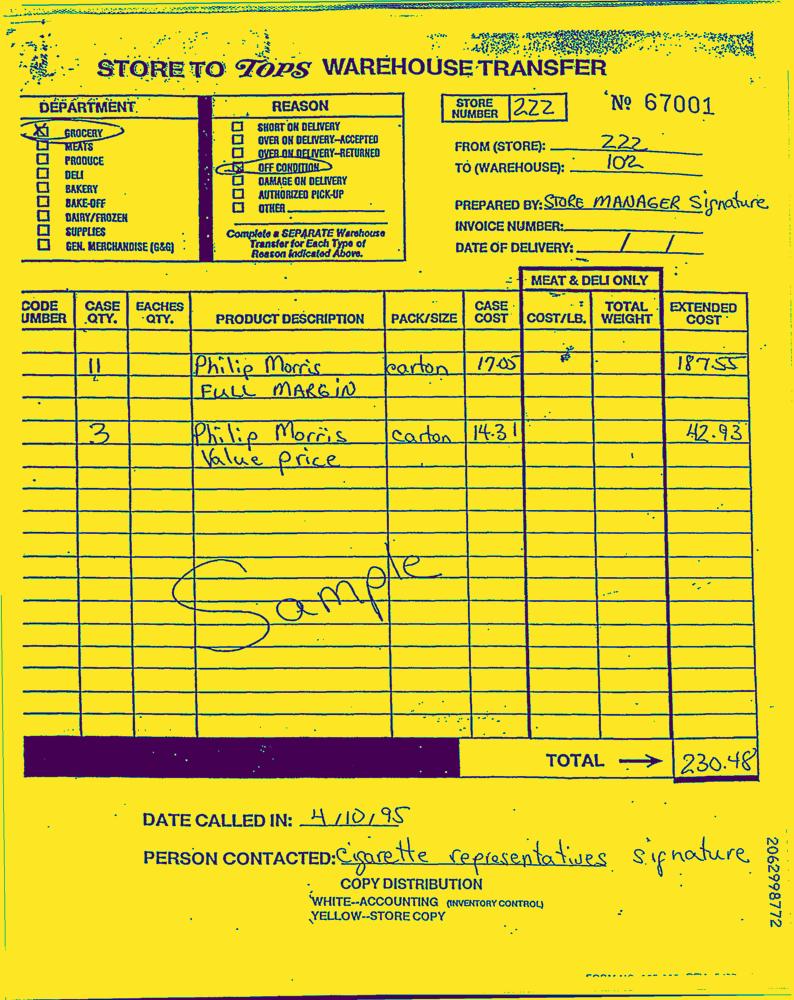 STORE TO TOPS WAREHOUSE TRANSFER
DEPARTMENT
GROCERY
MEATS
PRODUCE
DELI
BAKERY
BAKE-OFF
DAIRY/FROZEN
SUPPLIES
GEN. MERCHANDISE (G&G)
REASON
SHORT ON DELIVERY
OVER ON DELIVERY--ACCEPTED
OVER ON DELIVERY--RETURNED
OFF CONDITION
DAMAGE ON DELIVERY
AUTHORIZED PICK-UP
OTHER
Complete a SEPARATE Warehouse
Transfer for Each Type of
Reason Indicated Above.
STORE NUMBER 222 Nº 67001
FROM (STORE): 222
TO (WAREHOUSE): 102
PREPARED BY: STORE MANAGER Signature
INVOICE NUMBER:
DATE OF DELIVERY: / /
MEAT & DELI ONLY
CODE UMBER CASE QTY. EACHES QTY. PRODUCT DESCRIPTION PACK/SIZE CASE COST COST/LB. TOTAL WEIGHT EXTENDED COST
11 Philip Morris carton 17.05 187.55
FULL MARGIN
3 Philip Morris carton 14.31 42.93
Value price
Sample
TOTAL → 230.48
DATE CALLED IN: 4/10/95
PERSON CONTACTED: Cigarette representatives signature
COPY DISTRIBUTION
WHITE--ACCOUNTING (INVENTORY CONTROL)
YELLOW--STORE COPY
2062998772